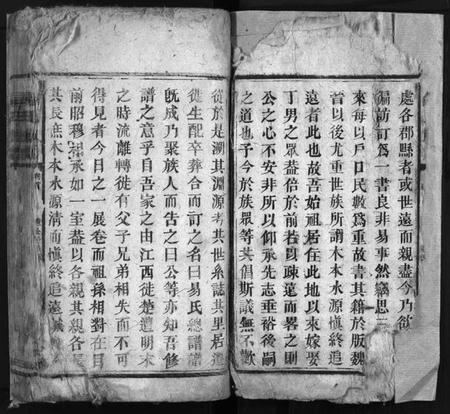 處各郡縣者或世遠而親盡今乃欲
徧訪訂爲一書良非易事然竊思三
來每以戶口民數爲重故書其籍於版魏
晉以後尤重世族所謂木本水源愼終追
遠者此也故吾始祖居住此地以來嫁娶
丁男之眾益倍於前若以疎遠而畧之則
公之心不安非所以仰承先志垂裕後嗣
之道也予今於族眾等共倡斯議無不歡
從於是溯其淵源考其世系誌其里居遷
徙生配卒葬合而訂之名曰易氏總譜譜
旣成乃聚族人而告之曰公等亦知吾修
譜之意乎自吾家之由江西徙楚遭明末
之時流離轉徙有父子兄弟相失而不可
得見者今日之一展卷而祖孫相對在目
前昭穆相承如一室盍以各親其親各長
其長庶木本水源清而愼終追遠